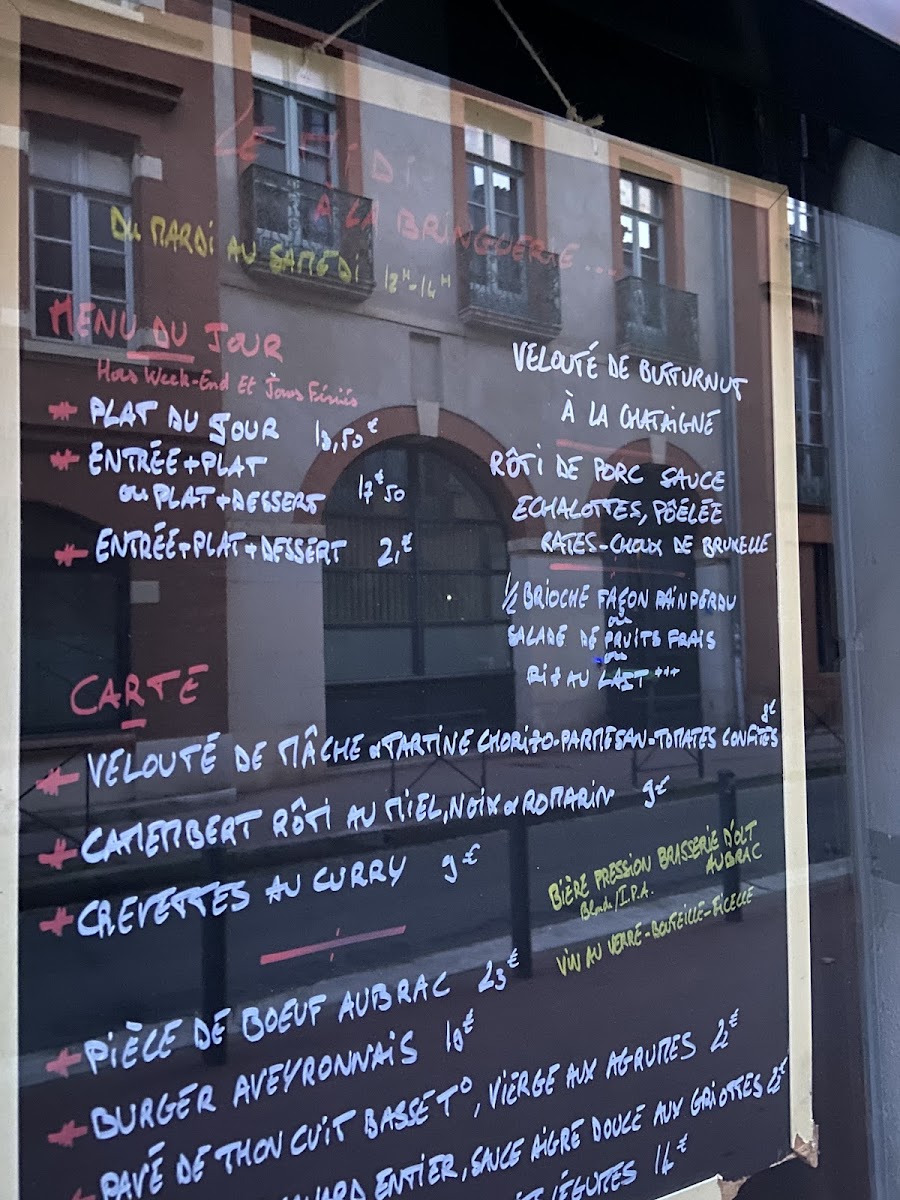 LE MIDI
À LA BRINGUERIE...
DU MARDI AU SAMEDI 12H-14H
MENU DU JOUR
Hors Week-End Et Jours Fériés
PLAT DU JOUR 13,50€
ENTRÉE+PLAT
ou PLAT+DESSERT 17€50
ENTRÉE+PLAT+DESSERT
VELOUTÉ DE BUTTURNUT
À LA CHATAIGNE
RÔTI DE PORC SAUCE
ECHALOTTES, PÔÊLÉE
RATES-CHOUX DE BRUXELLE
1/2 BRIOCHE FAÇON PAIN PERDU
ou
SALADE DE FRUITS FRAIS
ou
RIZ AU LAIT
CARTE
VELOUTÉ DE MÂCHE & TARTINE CHORIZO-PARMESAN-TOMATES CONFITES
CAMEMBERT RÔTI AU MIEL, NOIX & ROMARIN 9€
CREVETTES AU CURRY 9€
BIÈRE PRESSION BRASSERIE D'OLT
AUBRAC
Blonde/I.P.A.
VIN AU VERRE-BOUTEILLE-FICELLE
PIÈCE DE BOEUF AUBRAC 23€
BURGER AVEYRONNAIS
PAVÉ DE THON CUIT BASSE T°, VIERGE AUX AGRUMES 22€
ENTIER, SAUCE AIGRE DOUCE AUX GRIOTTES
LÉGUMES 14€